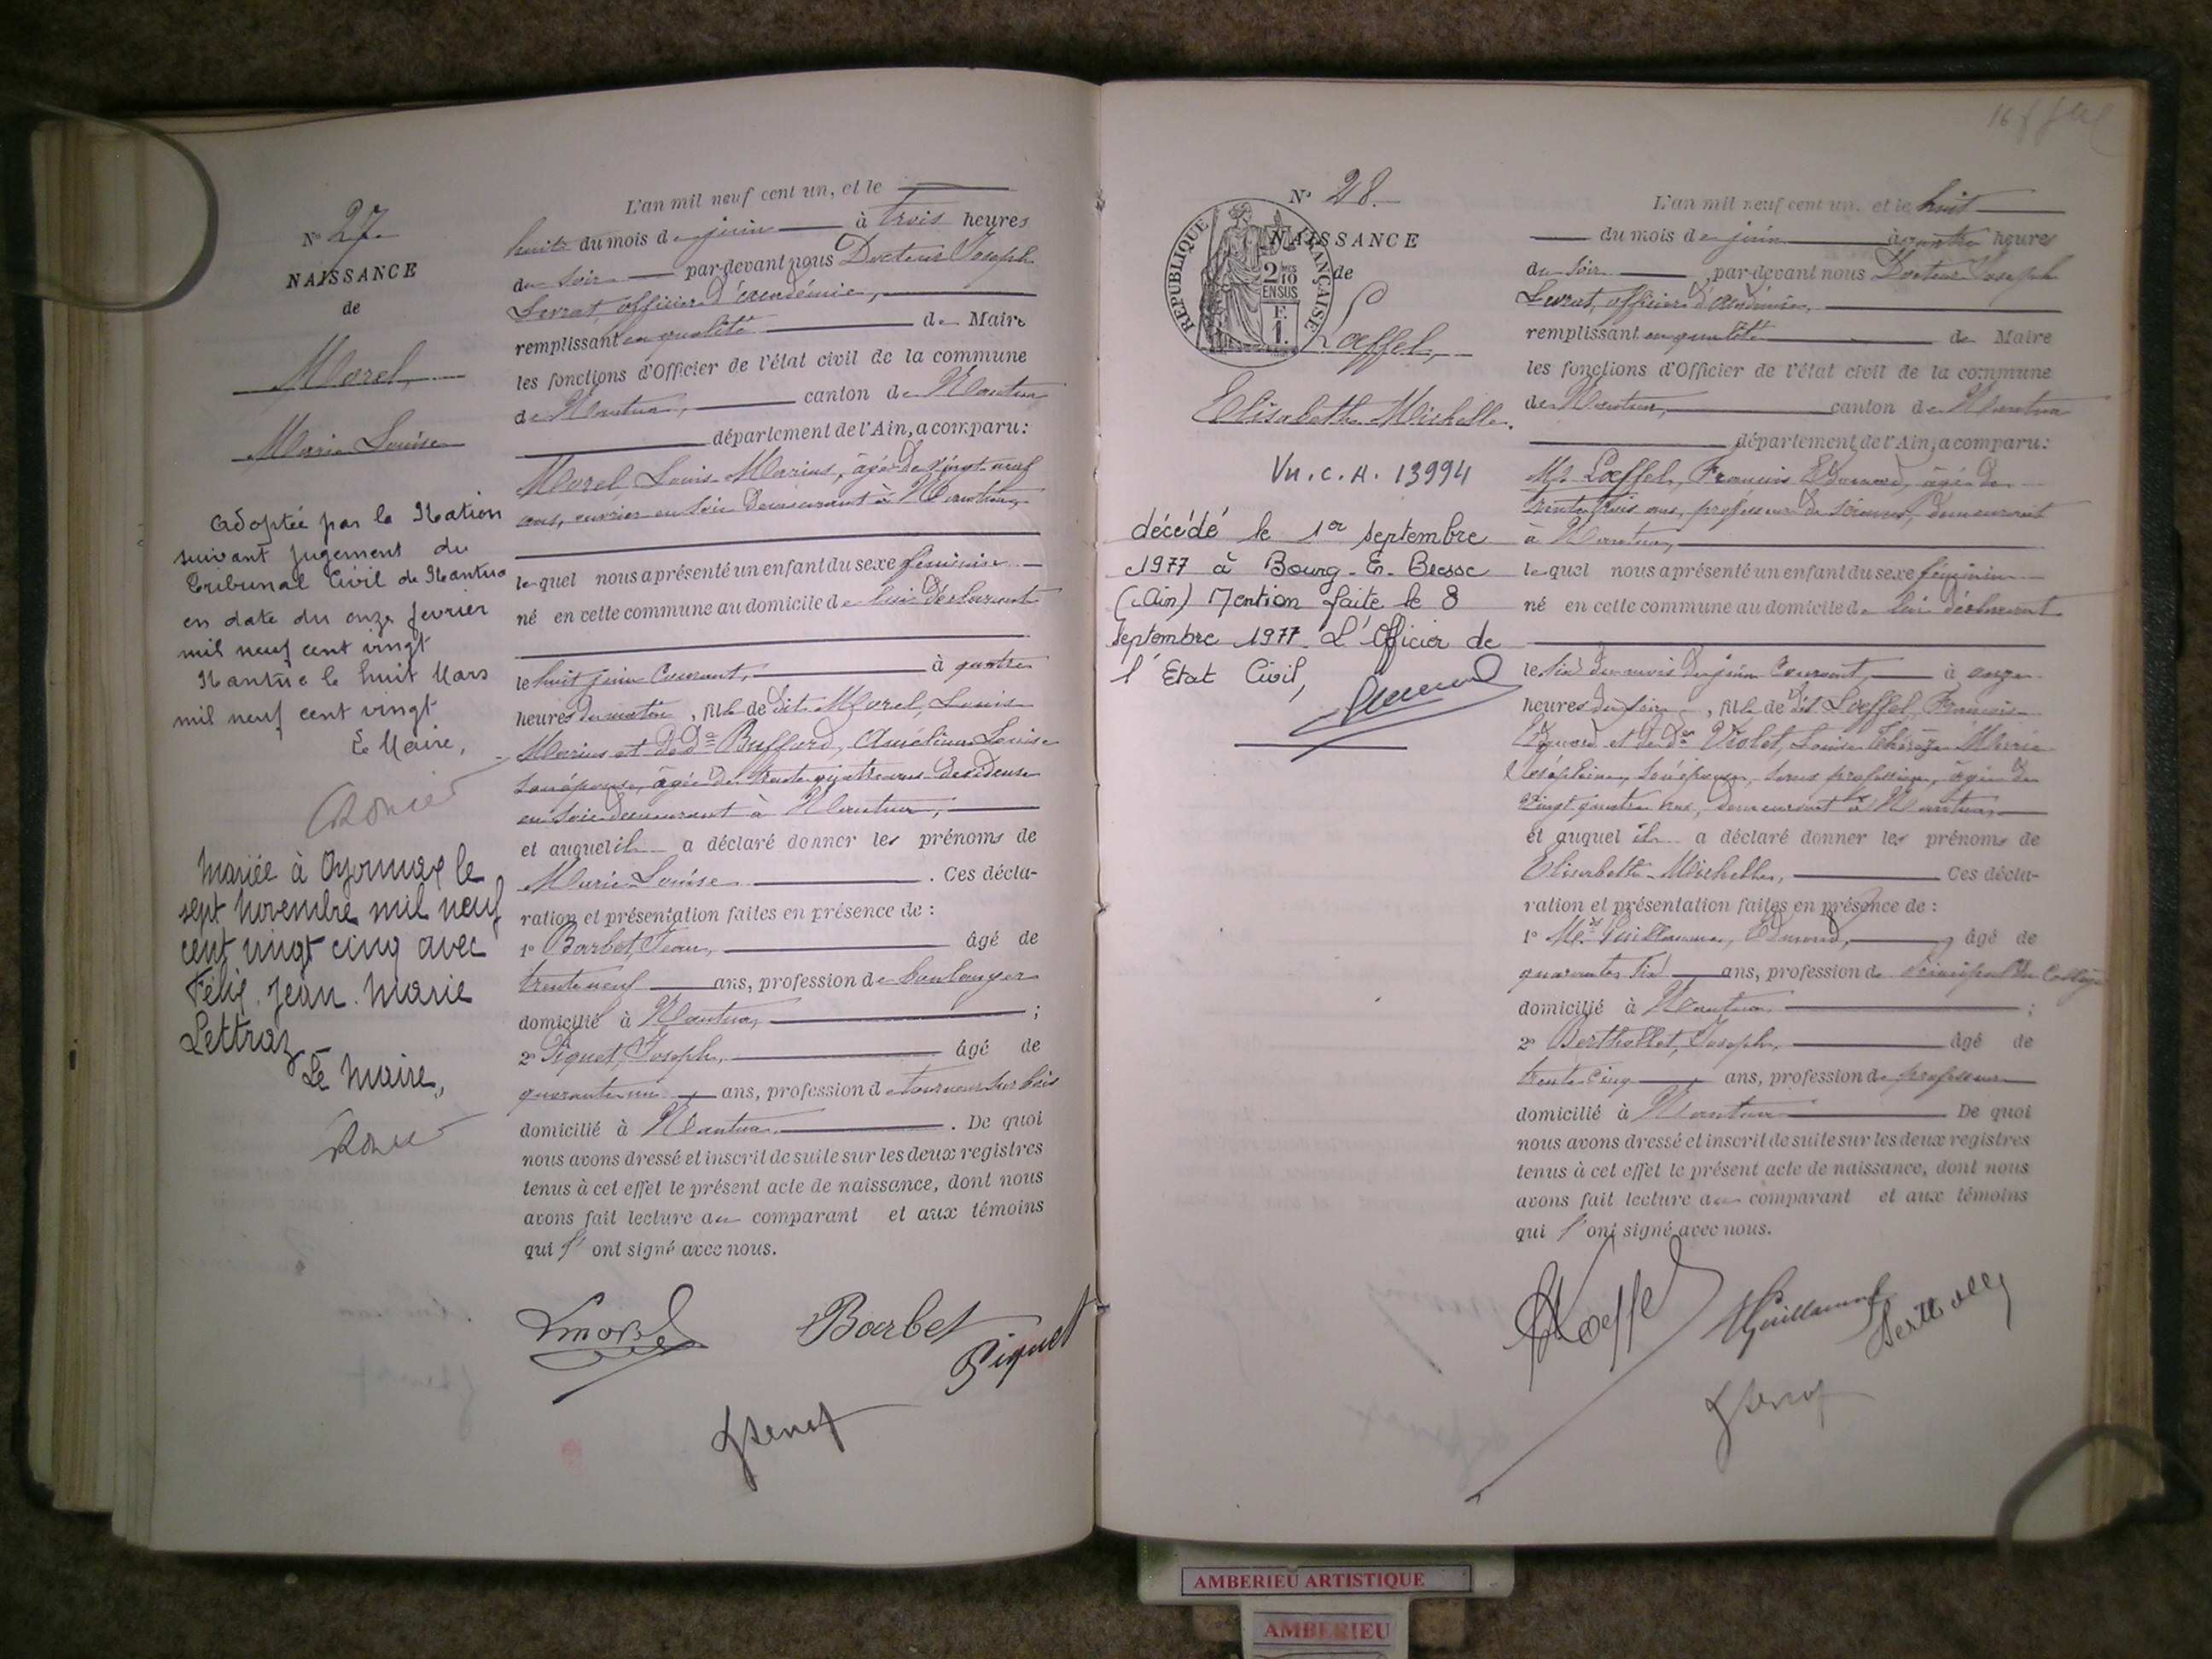 N° 27.
NAISSANCE
de
Morel,
Marie Louise
Adoptée par la Nation
suivant jugement du
Tribunal Civil de Nantua
en date du onze fevrier
mil neuf cent vingt
Nantua le huit Mars
mil neuf cent vingt
Le Maire,
Mariée à Oyonnax le
sept novembre mil neuf
cent vingt cinq avec
Félix. Jean. Marie
Lettraz
Le Maire,
L'an mil neuf cent un, et le
huit du mois de juin à trois heures
du soir par-devant nous Docteur Joseph
officier d'académie,
remplissant en qualité de Maire
les fonctions d'Officier de l'état civil de la commune
de Nantua, canton de Nantua
département de l'Ain, a comparu :
Morel, Louis Marius, âgé de vingt neuf
ans, ouvrier en soie demeurant à Nantua,
lequel nous a présenté un enfant du sexe féminin
né en cette commune au domicile de lui déclarant
le huit juin Courant, à quatre
heures du matin, fille de dit Morel, Louis
Marius et de De Buffard, Amélina Louise
son épouse, âgée de trente quatre ans dévideuse
en soie demeurant à Nantua,
et auquel il a déclaré donner les prénoms de
Marie Louise . Ces décla-
ration et présentation faites en présence de :
1° Barbet, Jean, âgé de
trente neuf ans, profession de boulanger
domicilié à Nantua, ;
2° Piquet, Joseph, âgé de
quarante un ans, profession de tourneur sur bois
domicilié à Nantua . De quoi
nous avons dressé et inscrit de suite sur les deux registres
tenus à cet effet le présent acte de naissance, dont nous
avons fait lecture au comparant et aux témoins
qui l' ont signé avec nous.
LMorel Barbet
Piquet
N° 28.
NAISSANCE
de
REPUBLIQUE FRANÇAISE
2/10
EN SUS
F.
1.
Lœffel,
Elisabeth Michelle.
Vu. C. A. 13994
décédé le 1er septembre
1977 à Bourg-En-Bresse
(Ain) Mention faite le 8
septembre 1977 L'Officier de
l'Etat Civil,
L'an mil neuf cent un, et le huit
du mois de juin à quatre heures
du soir, par-devant nous Docteur Joseph
officier d'académie,
remplissant en qualité de Maire
les fonctions d'Officier de l'état civil de la commune
de Nantua, canton de Nantua
département de l'Ain, a comparu :
Mr Lœffel, Francois Edouard, âgé de
trente trois ans, professeur de sciences, demeurant
à Nantua,
lequel nous a présenté un enfant du sexe féminin
né en cette commune au domicile de lui déclarant
le six du mois de juin Courant, à onze
heures du soir, fille de dit Lœffel, Francois
Edouard et de De Violet, Louise Thérèze Marie
Joséphine, son épouse, sans profession, âgée de
vingt quatre ans, demeurant à Nantua,
et auquel il a déclaré donner les prénoms de
Elisabeth Michelle, Ces décla-
ration et présentation faites en présence de :
1° Guillaume, Edmond, âgé de
quarante six ans, profession de Principal du Collège
domicilié à Nantua ;
2° Berthollet, Joseph, âgé de
trente cinq ans, profession de professeur
domicilié à Nantua De quoi
nous avons dressé et inscrit de suite sur les deux registres
tenus à cet effet le présent acte de naissance, dont nous
avons fait lecture au comparant et aux témoins
qui l' ont signé avec nous.
Loeffel Guillaume
AMBERIEU ARTISTIQUE
AMBERIEU